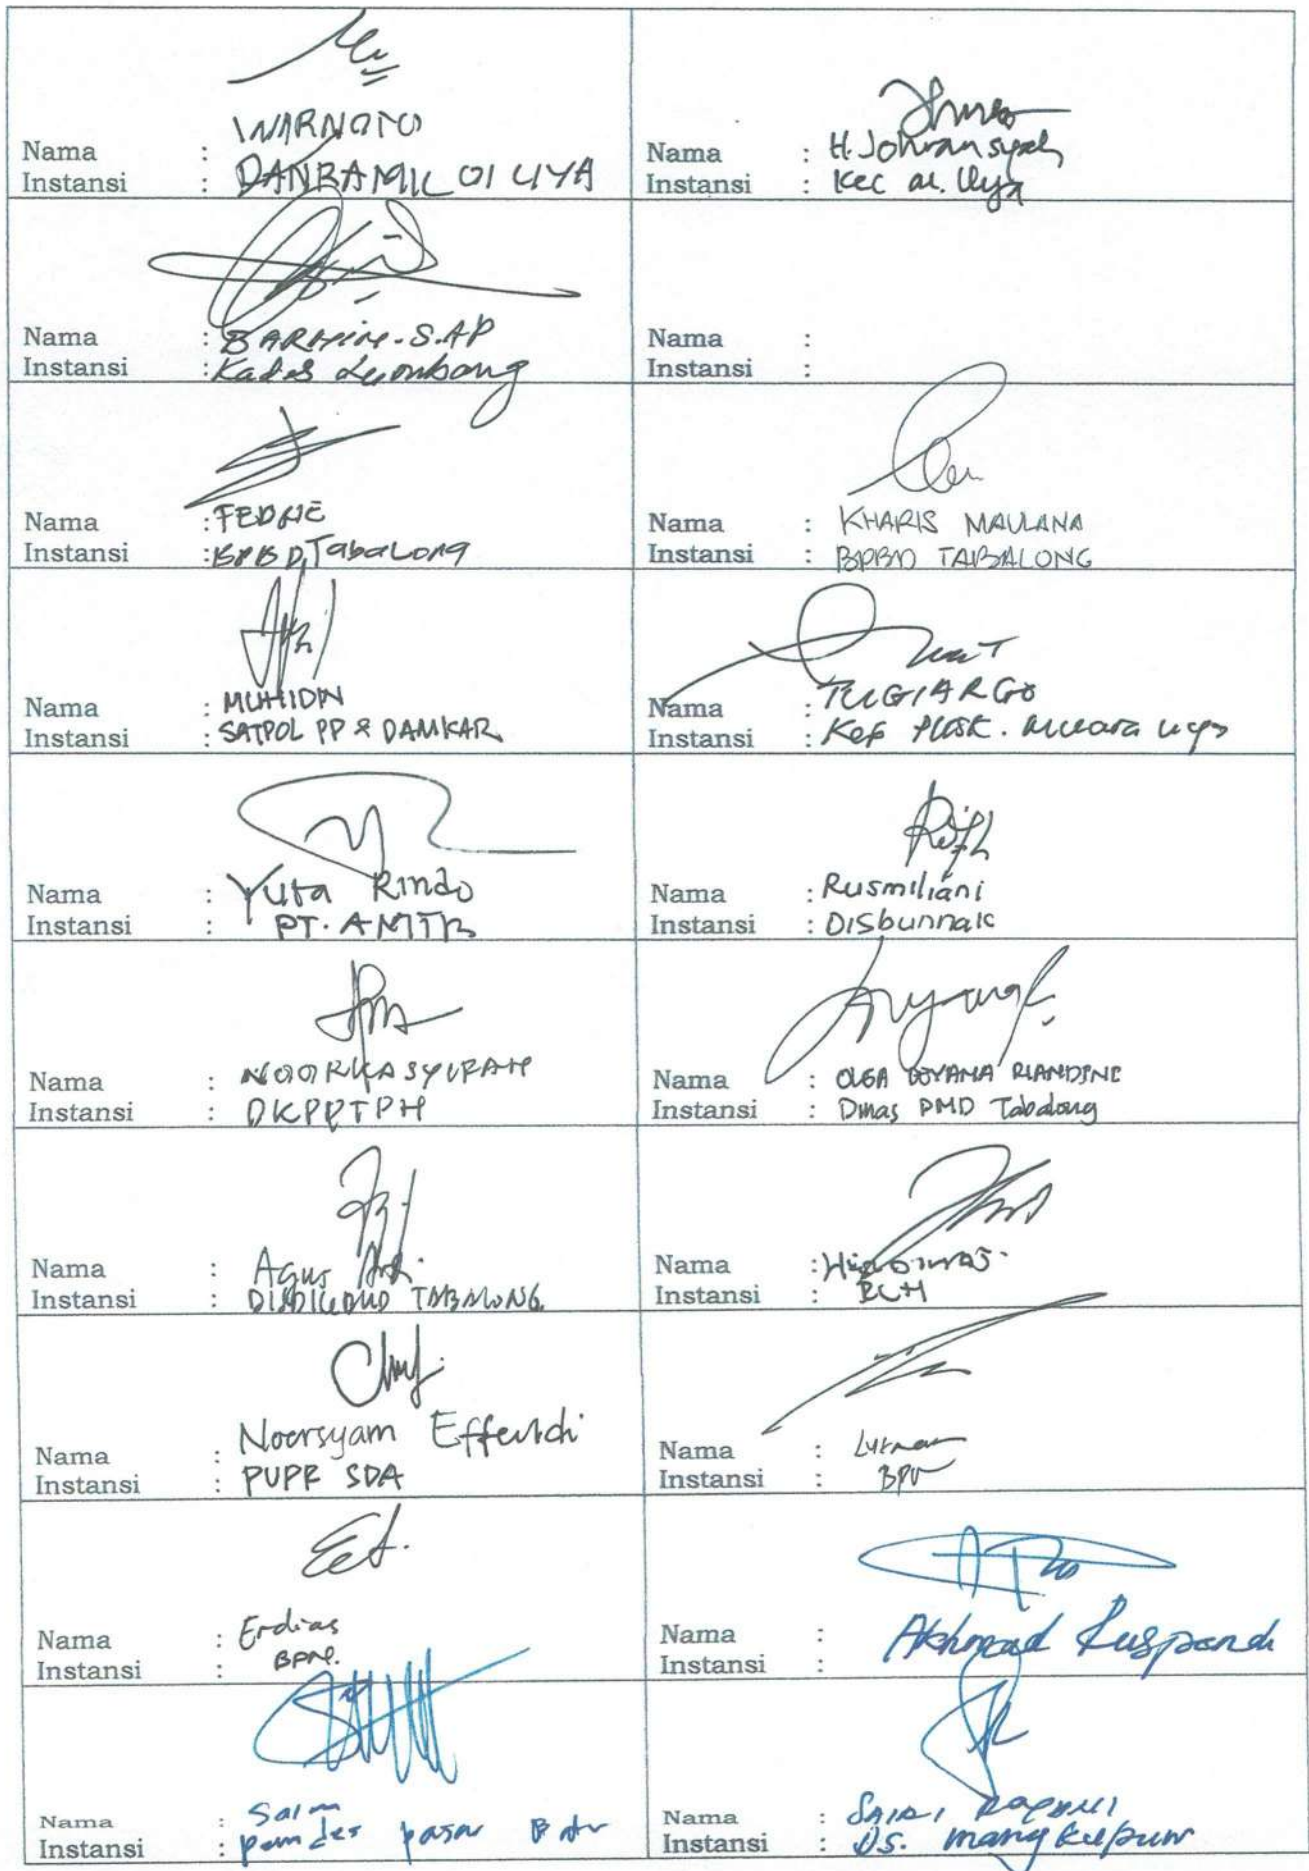 Nama : WARNOTO
Instansi : DANRAMIL 01 UYA
Nama : H. Johransyah
Instansi : Kec M. Uya
Nama : BARHIM. S.AP
Instansi : Kades Lumbang
Nama :
Instansi :
Nama : FEDRIE
Instansi : BPBD, Tabalong
Nama : KHARIS MAULANA
Instansi : BPBD TABALONG
Nama : MUHIDIN
Instansi : SATPOL PP & DAMKAR
Nama : TUGIARGO
Instansi : Kep PUSK. Muara uya
Nama : Yuta Rindo
Instansi : PT.
Nama : Rusmiliani
Instansi : Disbunnak
Nama : NOORKASYIPAH
Instansi : DKPPTPH
Nama : OLGA RIANDINE
Instansi : Dinas PMD Tabalong
Nama : Agus
Instansi : DISDIKBUD TABALONG
Nama :
Instansi :
Nama : Noorsyam Effendi
Instansi : PUPR SDA
Nama : Lukman
Instansi :
Nama : Erdias
Instansi :
Nama : Akhmad Ruspandi
Instansi :
Nama :
Instansi : pemdes pasar Batu
Nama :
Instansi : DS. mangkupum